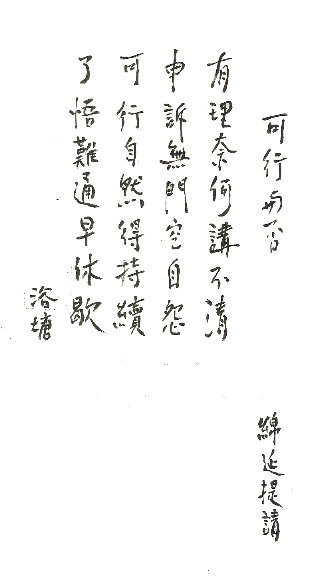 可行與否
綿延提請
有理奈何講不清
申訴無門空自怨
可行自然得持續
了悟難通早休歇
洛塘